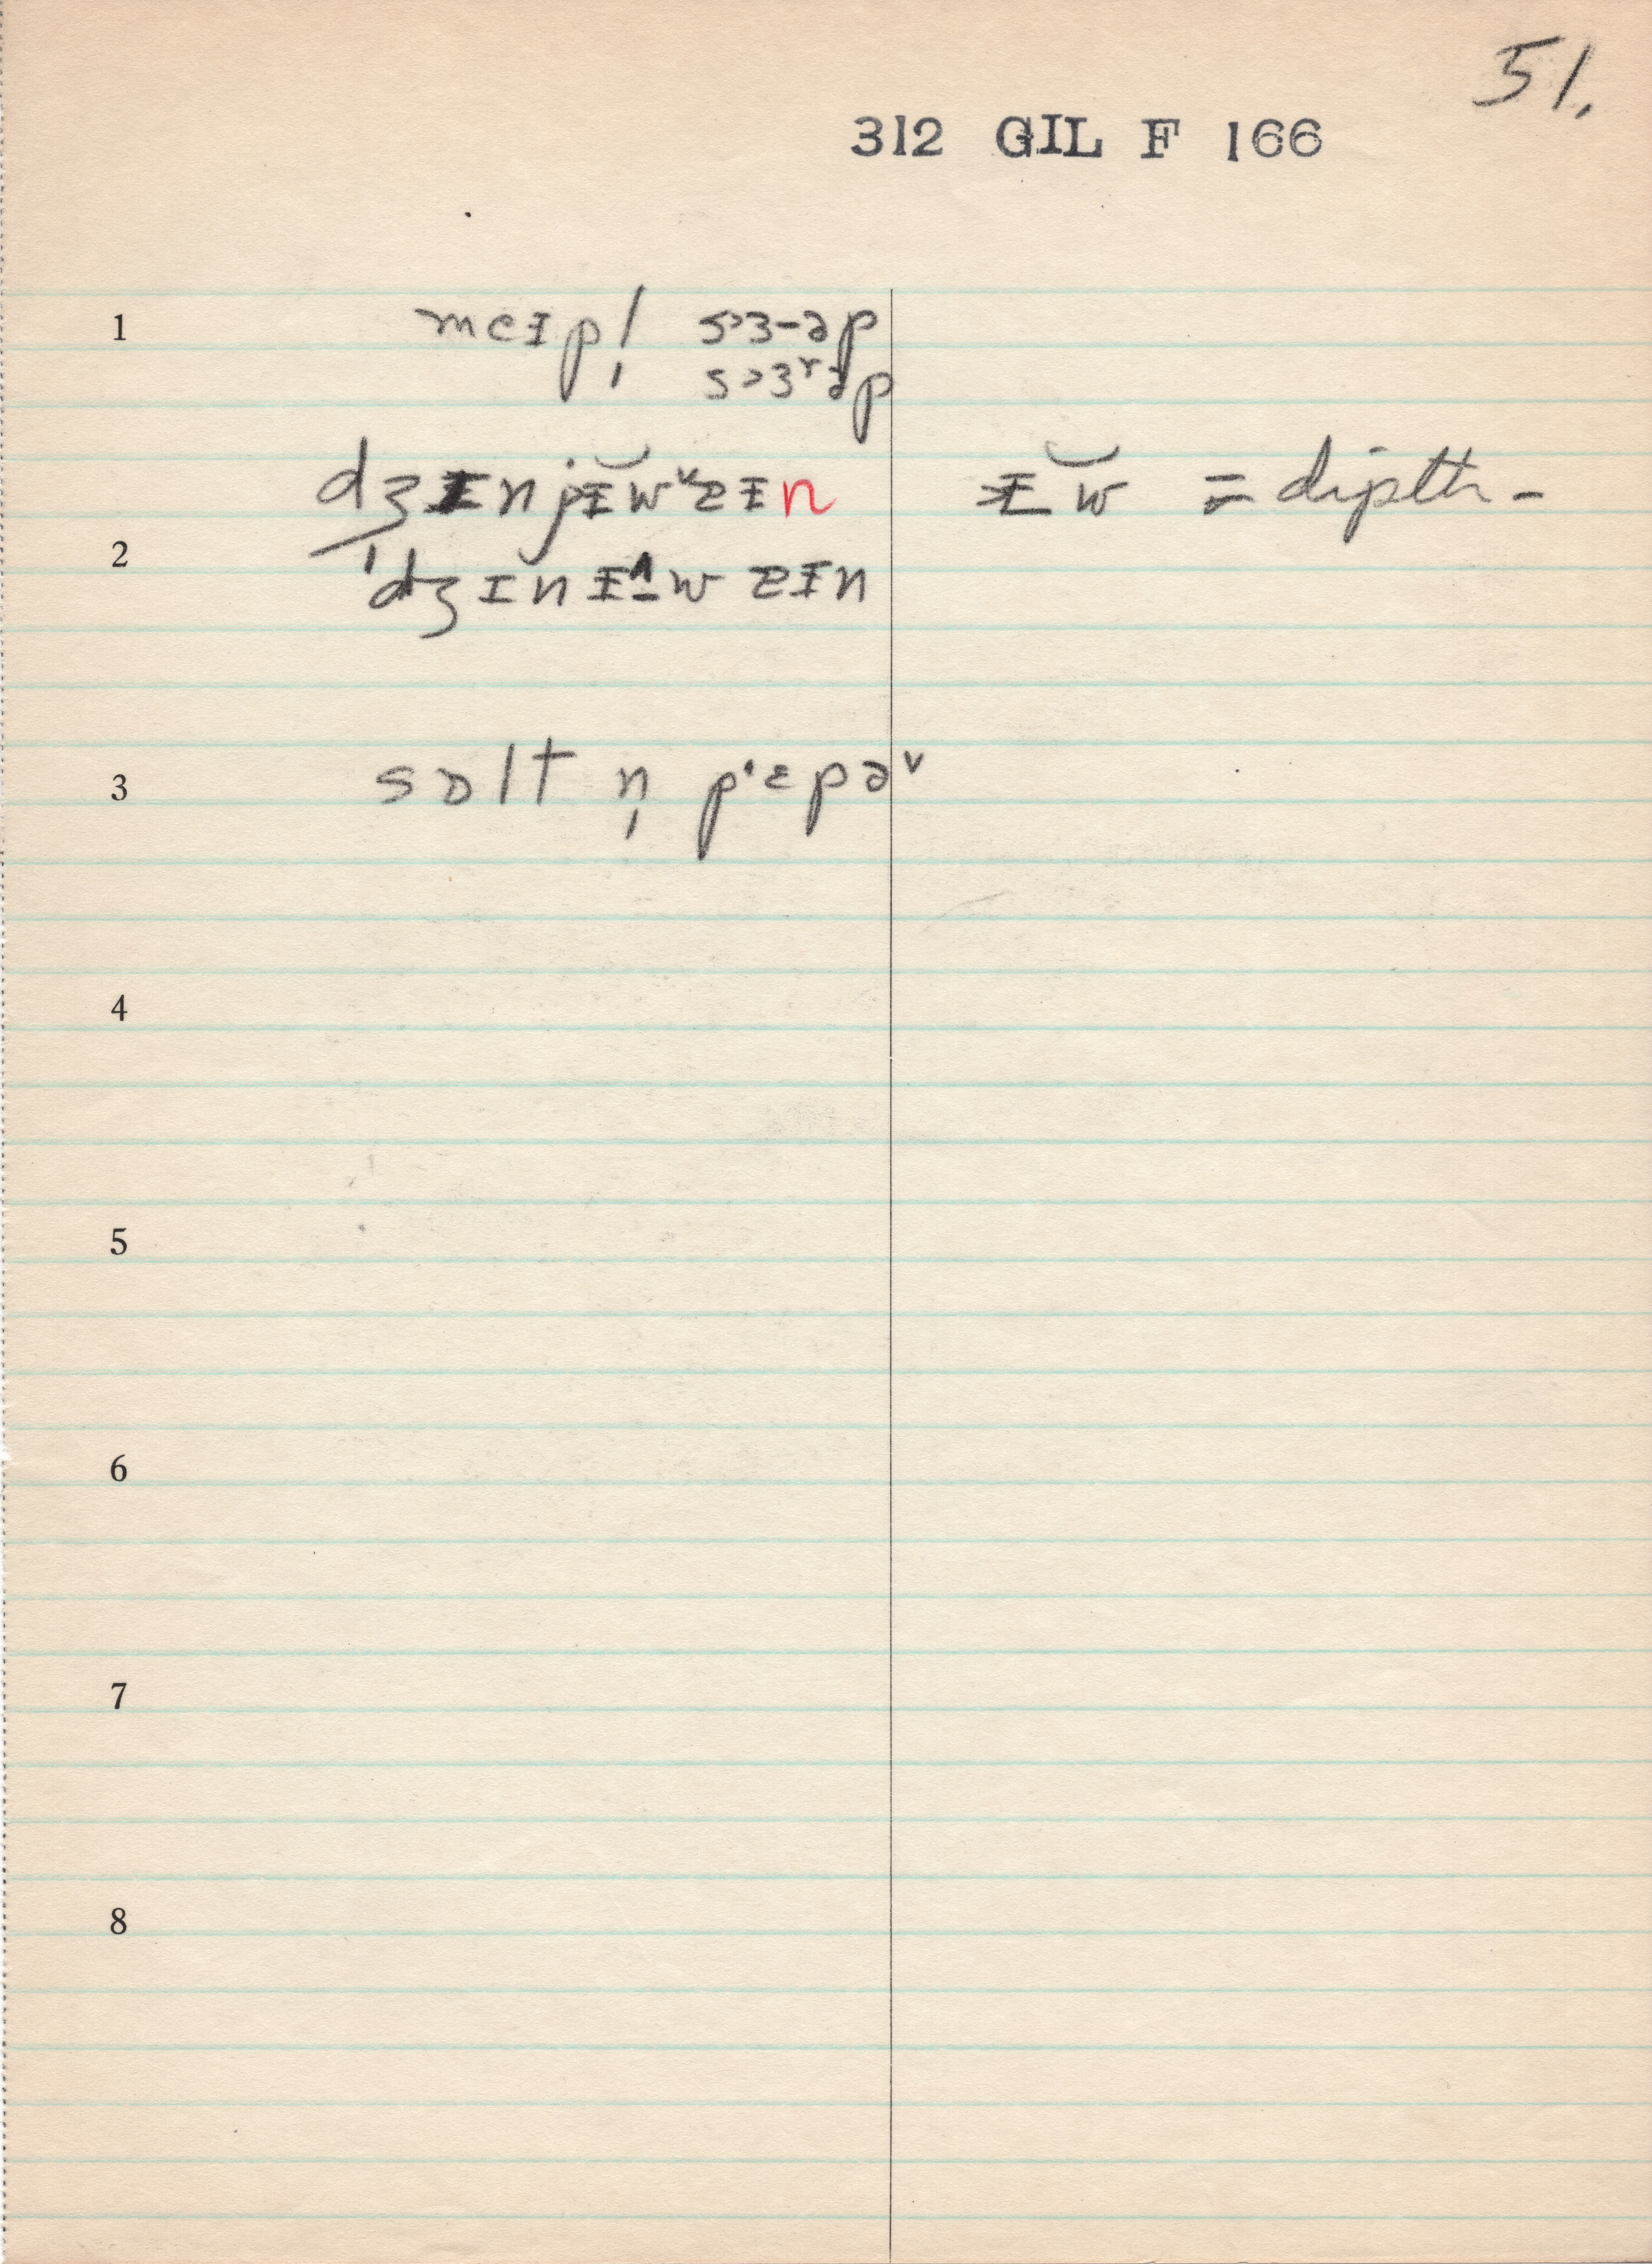 51.
312 GIL F 166
1 meɪpl̩ s>ɜ-əp
s>ɜʳəp
dʒᵻnjᵻw˅zᵻn ᵻw = dipth-
2 'dʒɪnᵻ^wzᵻn
3 sɒlt n̩ p'ɛpə˅
4
5
6
7
8